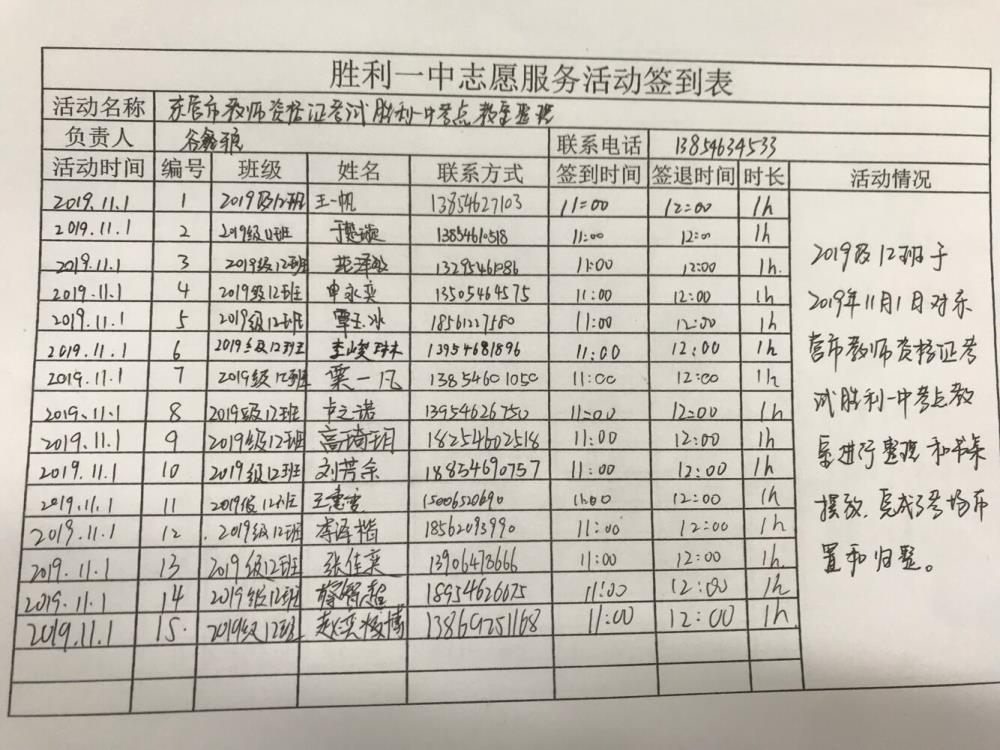 胜利一中志愿服务活动签到表
活动名称 东营市教师资格证考试胜利一中考点教室整理
负责人 联系电话 13854634533
活动时间 编号 班级 姓名 联系方式 签到时间 签退时间 时长 活动情况
2019.11.1 1 2019级12班 王一帆 13854627103 11:00 12:00 1h
2019.11.1 2 2019级12班 13854610518 11:00 12:00 1h
2019.11.1 3 2019级12班 11:00 12:00 1h.
2019.11.1 4 2019级12班 申永奕 13505464575 11:00 12:00 1h
2019.11.1 5 2019级12班 覃玉冰 18561227580 11:00 12:00 1h
2019.11.1 6 2019级12班 李峻琳 13954681896 11:00 12:00 1h
2019.11.1 7 2019级12班 栗一凡 13854601050 11:00 12:00 1h
2019.11.1 8 2019级12班 卢之诺 13954626750 11:00 12:00 1h
2019.11.1 9 2019级12班 高琦玥 18254602518 11:00 12:00 1h
2019.11.1 10 2019级12班 刘芳余 18854690757 11:00 12:00 1h
2019.11.1 11 2019级12班 15006520690 11:00 12:00 1h
2019.11.1 12 2019级12班 李泽楷 18562093990 11:00 12:00 1h
2019.11.1 13 2019级12班 张佳奕 13906478666 11:00 12:00 1h.
2019.11.1 14 2019级12班 18954626675 11:00 12:00 1h
2019.11.1 15. 2019级12班 赵奕凌博 13869251168 11:00 12:00 1h.
2019级12班于
2019年11月1日对东
营市教师资格证考
试胜利一中考点教
室进行整理和书桌
摆放，完成了考场布
置和归整。